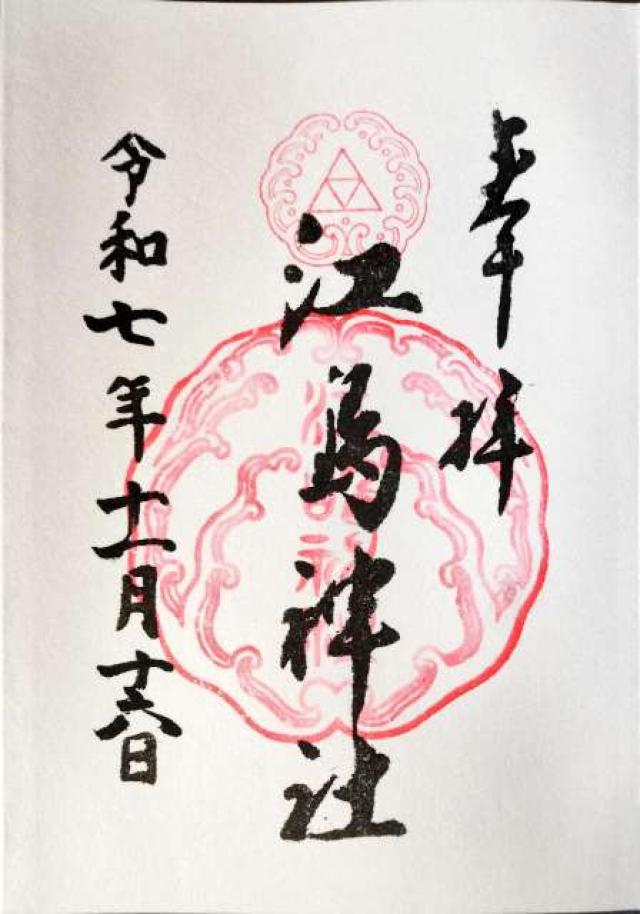 奉拝
江島神社
令和七年十一月十六日